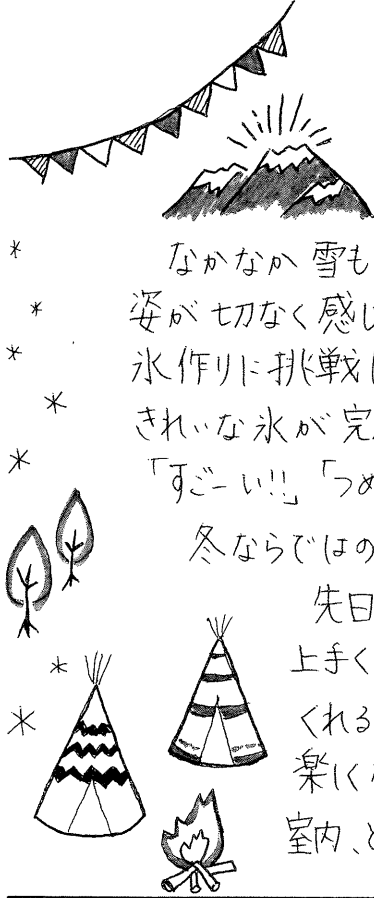 なかなか雪も
姿が切なく感じ
氷作りに挑戦し
きれいな氷が完
「すごーい!!」「つめ
冬ならではの
先日
上手く
くれる
楽しく
室内、と